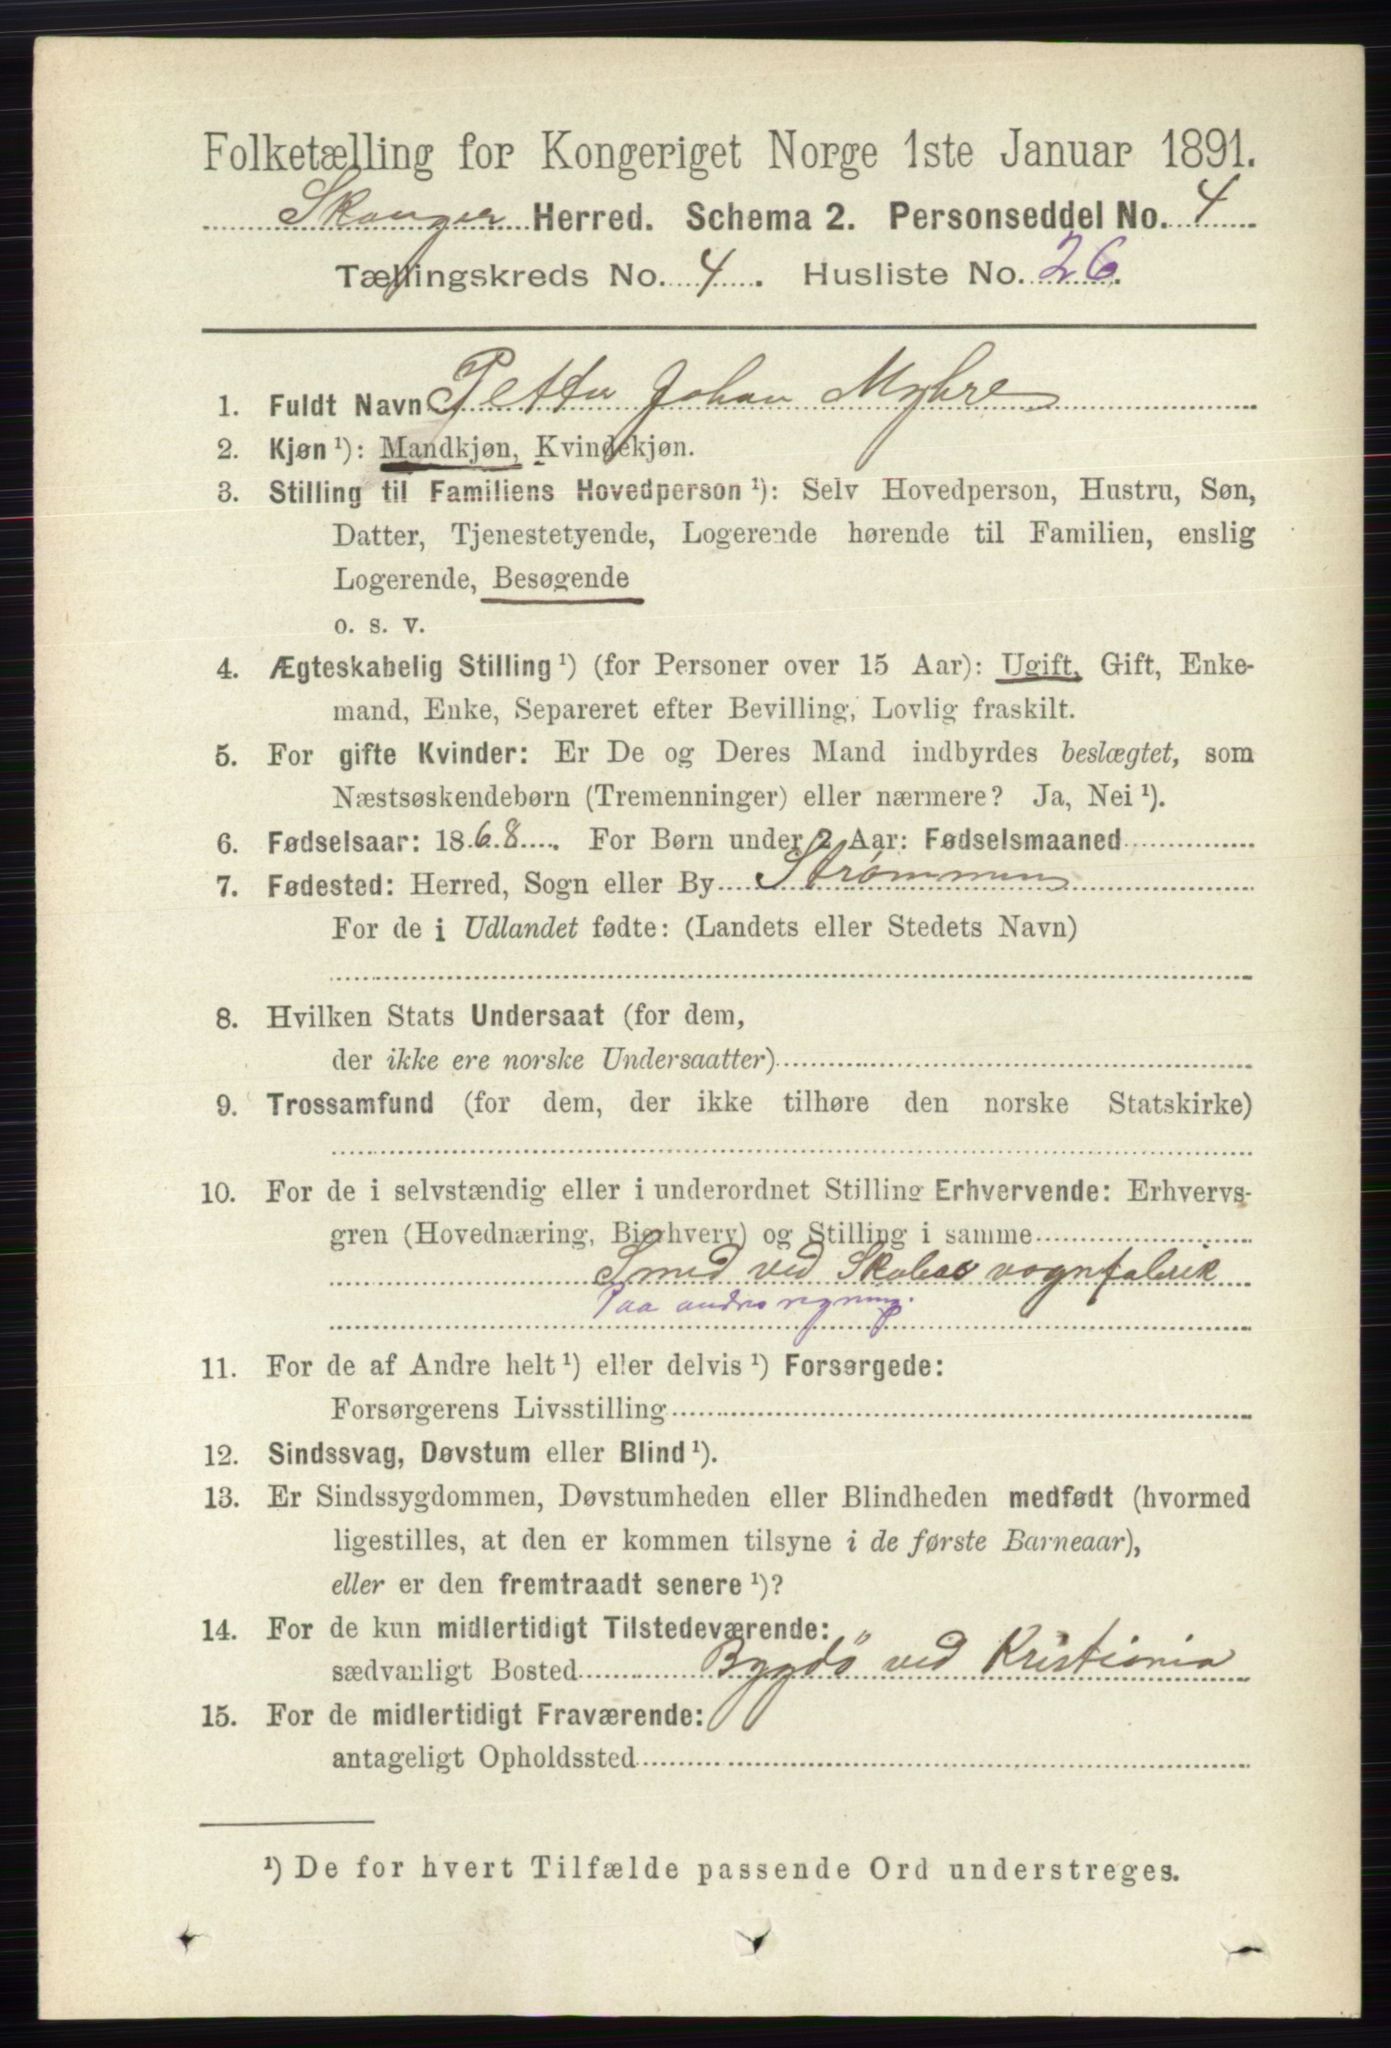 Folketælling for Kongeriget Norge 1ste Januar 1891.
Skouger Herred. Schema 2. Personseddel No. 4
Tællingskreds No. 4. Husliste No. 26.
1. Fuldt Navn Petter Johan Myhre
2. Kjøn ¹): Mandkjøn, Kvindekjøn.
3. Stilling til Familiens Hovedperson ¹): Selv Hovedperson, Hustru, Søn,
Datter, Tjenestetyende, Logerende hørende til Familien, enslig
Logerende, Besøgende
o. s. v.
4. Ægteskabelig Stilling ¹) (for Personer over 15 Aar): Ugift, Gift, Enke-
mand, Enke, Separeret efter Bevilling, Lovlig fraskilt.
5. For gifte Kvinder: Er De og Deres Mand indbyrdes beslægtet, som
Næstsøskendebørn (Tremenninger) eller nærmere? Ja, Nei ¹).
6. Fødselsaar: 1868. For Børn under 2 Aar: Fødselsmaaned
7. Fødested: Herred, Sogn eller By Strømmen
For de i Udlandet fødte: (Landets eller Stedets Navn)
8. Hvilken Stats Undersaat (for dem,
der ikke ere norske Undersaatter)
9. Trossamfund (for dem, der ikke tilhøre den norske Statskirke)
10. For de i selvstændig eller i underordnet Stilling Erhvervende: Erhvervs-
gren (Hovednæring, Bierhverv) og Stilling i samme
Smed ved Skabos vognfabrik
Paa andres regning.
11. For de af Andre helt ¹) eller delvis ¹) Forsørgede:
Forsørgerens Livsstilling
12. Sindssvag, Døvstum eller Blind ¹).
13. Er Sindssygdommen, Døvstumheden eller Blindheden medfødt (hvormed
ligestilles, at den er kommen tilsyne i de første Barneaar),
eller er den fremtraadt senere ¹)?
14. For de kun midlertidigt Tilstedeværende:
sædvanligt Bosted Bygdö ved Kristiania
15. For de midlertidigt Fraværende:
antageligt Opholdssted
¹) De for hvert Tilfælde passende Ord understreges.